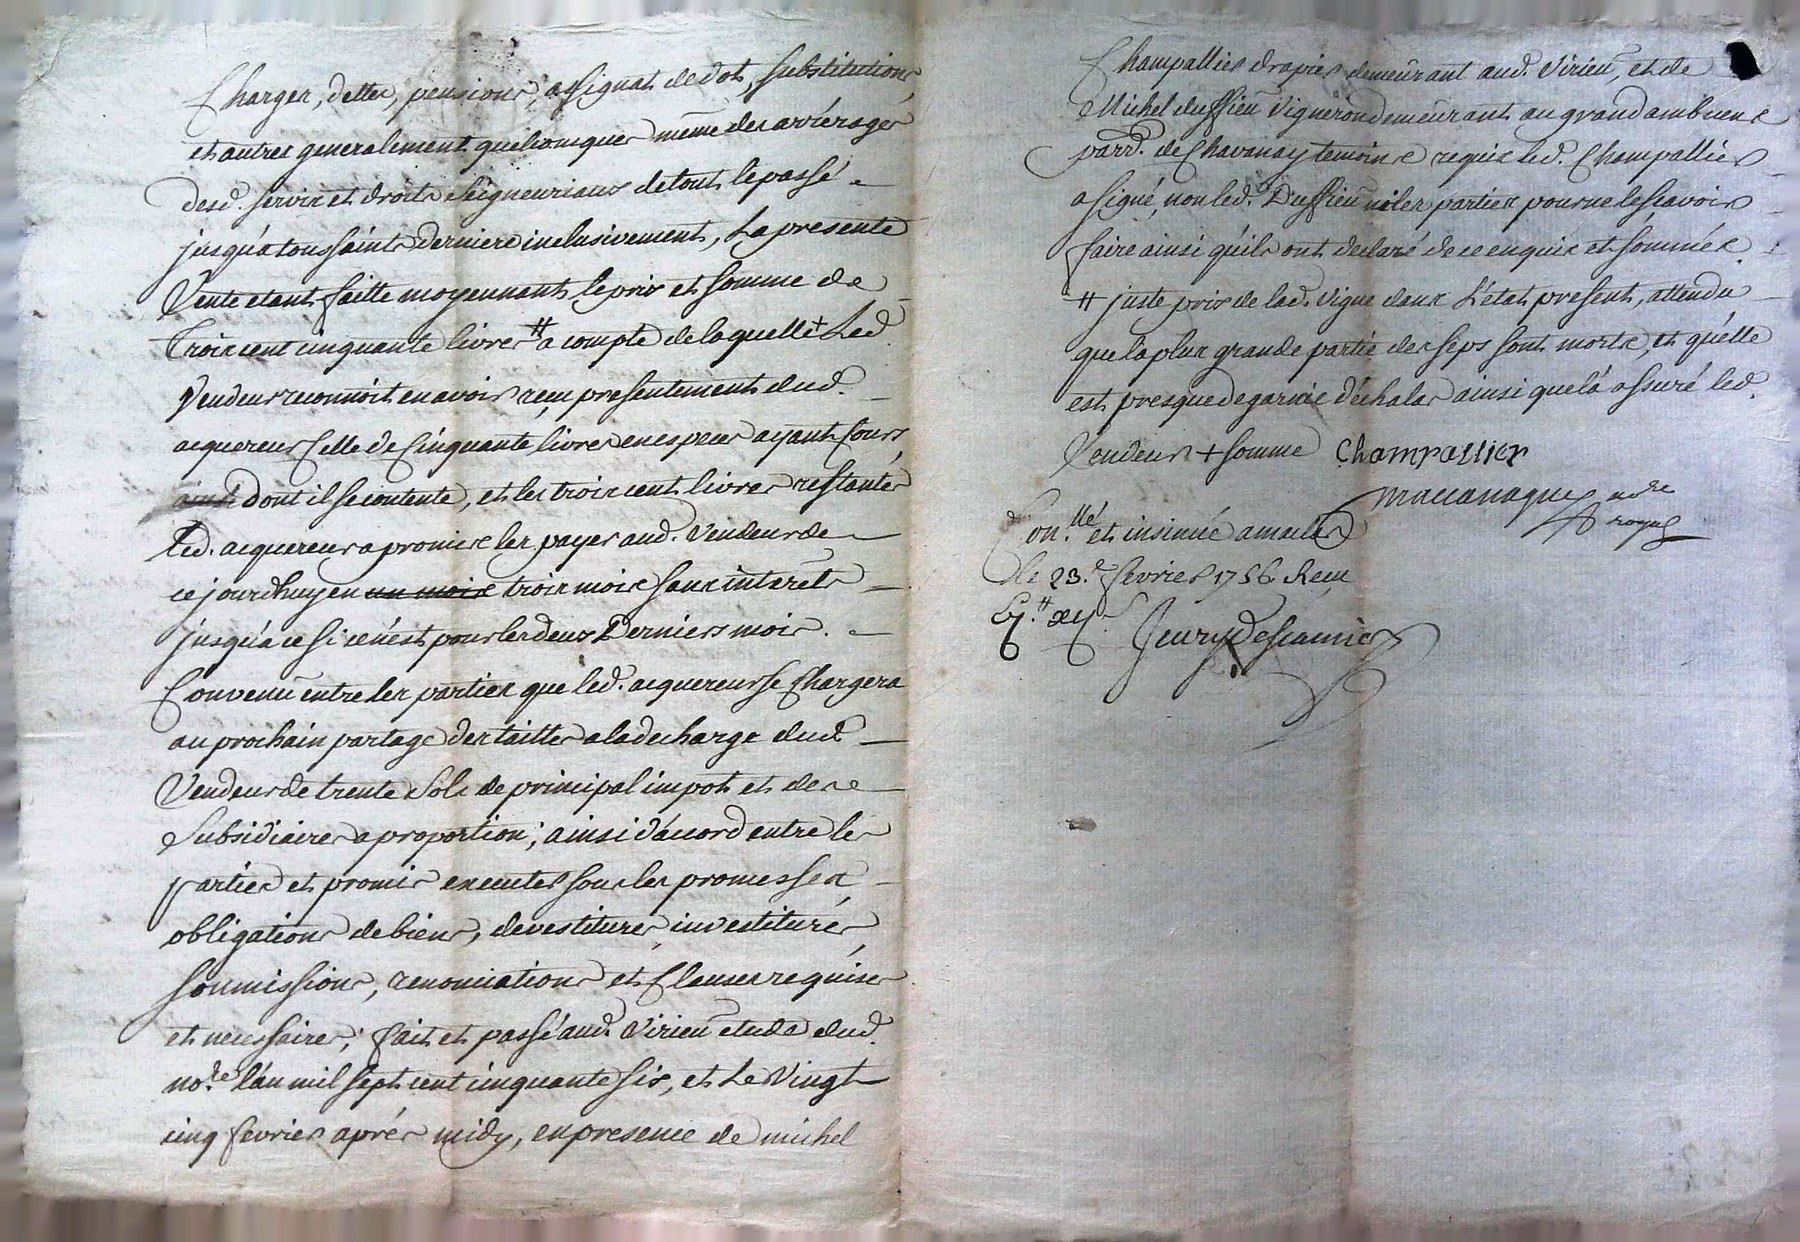 Charges, dettes, pensions, assignat de dot, substitutions
et autres generalement quelconques même des arrérages
desd. servis et droits seigneuriaux de tout le passé
jusqu'a toussaints derniere inclusivement, La presente
Vente etant faitte moyennant le prix et somme de
Trois cent cinquante livres # a compte de laquelle + Led.
Vendeur reconnoit en avoir reçu presentement dud.
acquereur Celle de Cinquante livres en especes ayant Cours
dont il se contente, et les trois cent livres restantes
Led. acquereur a promis de les payer aud. Vendeur de
ce jourdhuy en un mois trois mois sans interets
jusqu'a ce si ce n'est pour les deux Derniers mois.
Convenu entre les parties que led. acquereur se Chargera
au prochain partage des tailles a la decharge dud.
Vendeur de trente Sols de principal impot et de
Subsidiaires a proportion; ainsi d'accord entre les
parties et promis executer sous les promesses
obligations de biens, devestitures investitures
soumissions, renonciations et Clauses requises
et necessaires; fait et passé aud. Virieu etude dud.
no.re l'an mil sept cent cinquante six, et Le Vingt
cinq fevrier aprés midy, en presence de michel
Champallier drapier demeurant aud. Virieu, et de
Michel duffieu Vigneron demeurant au grand ambuent
parr. de Chavanay temoins requis led. Champallier
a signé, non led. Duffieu ni les parties pour ne le scavoir
faire ainsi qu'ils ont declaré de ce enquis et sommés.
# juste prix de lad. vigne dans l'état present, attendu
que la plus grande partie des seps sont morts, et qu'elle
est presque degarnie d'échalas ainsi que l'a assuré led.
Vendeur + somme Champallier
no.re
royal
Con.llé et insinué a
le 23.e fevrier 1756. Recu